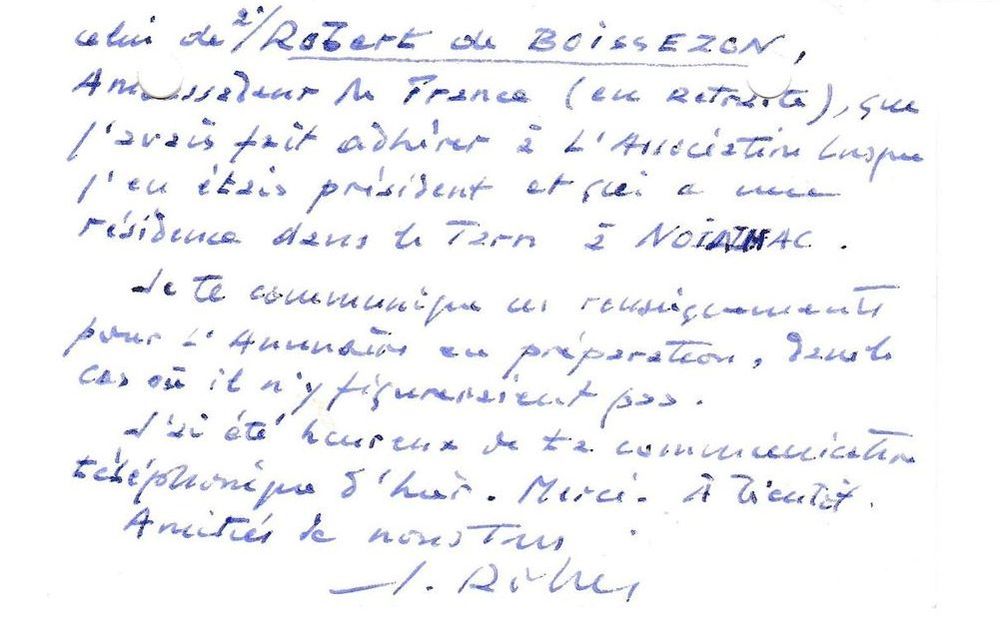 celui de 2°/ Robert de BOISSEZON,
Ambassadeur de France (en retraite), que
j'avais fait adhérer à l'Association lorsque
j'en étais président et qui a une
résidence dans le Tarn à
Je te communique ces renseignements
pour l'Annuaire en préparation, dans le
cas où il n'y figureraient pas.
J'ai été heureux de ta communication
téléphonique d'hier. Merci. À bientôt.
Amitiés de nous tous
J.